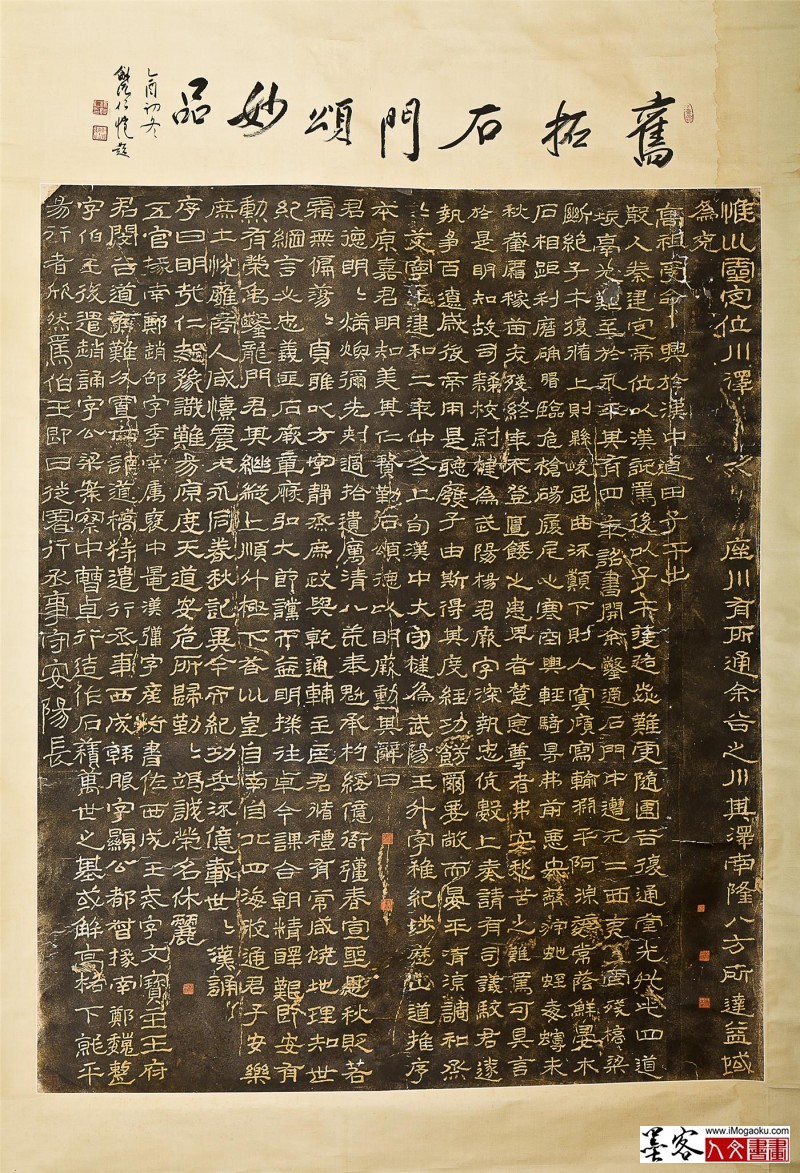 舊拓石門頌妙品
乙酉初冬
題
惟巛靈定位川澤川有所通余谷之川其澤南隆八方所達益域
為充
高祖受命興於漢中道由子午出
散入秦建定帝位以漢詆焉後以子午塗路歰難更隨圍谷復通堂光凡此四道
垓鬲尤艱至於永平其有四年詔書開余鑿通石門中遭元二西夷虐殘橋梁
斷絕子午復循上則縣峻屈曲流顛下則入冥廎寫輸淵平阿淖泥常蔭鮮晏木
石相距利磨确磐臨危槍碭履尾心寒空輿輕騎弗前惡虫蔽狩虵蛭毒蟃未
秋截霜稼苗夭殘終年不登匱餧之患卑者楚惡尊者弗安愁苦之難焉可具言
於是明知故司隸校尉楗為武陽楊君厥字深執忠伉數上奏請有司議駮君遂
執爭百遼咸從帝用是聽廢子由斯得其度經功飭爾要敞而晏平清涼調和烝
烝艾寧至建和二年仲冬上旬漢中大守楗為武陽王升字稚紀涉歷山道推序
本原嘉君明知美其仁賢勒石頌德以明厥勳其辭曰
君德明明炳煥彌光刺過拾遺厲清八荒奉魁承杓綏億衙彊春宣聖恩秋貶若
霜無偏蕩蕩貞雅以方寧靜烝庶政與乾通輔主匡君循禮有常咸曉地理知世
紀綱言必忠義匪石厥章恢弘大節讜而益明揆往卓今謀合朝情醳艱即安有
勳有榮禹鑿龍門君其繼縱上順斗極下答坤皇自南自北四海攸通君子安樂
庶士悅雍商人咸憘農夫永同春秋記異今而紀功垂流億載世世嘆誦
序曰明哉仁知豫識難易原度天道安危所歸勤勤竭誠榮名休麗
五官掾南鄭趙邵字季南屬褒中晁漢彊字產伯書佐西成王戒字文寶主王府
君閔谷道危難分置六部道橋特遣行丞事西成韓朖字顯公都督掾南鄭魏整
字伯玉後遣趙誦字公梁案察中曹卓行造作石積萬世之基或解高格下就平
易行者欣然焉伯玉即日徙署行丞事守安陽長
www.iMogaoku.com
墨客人文書畫